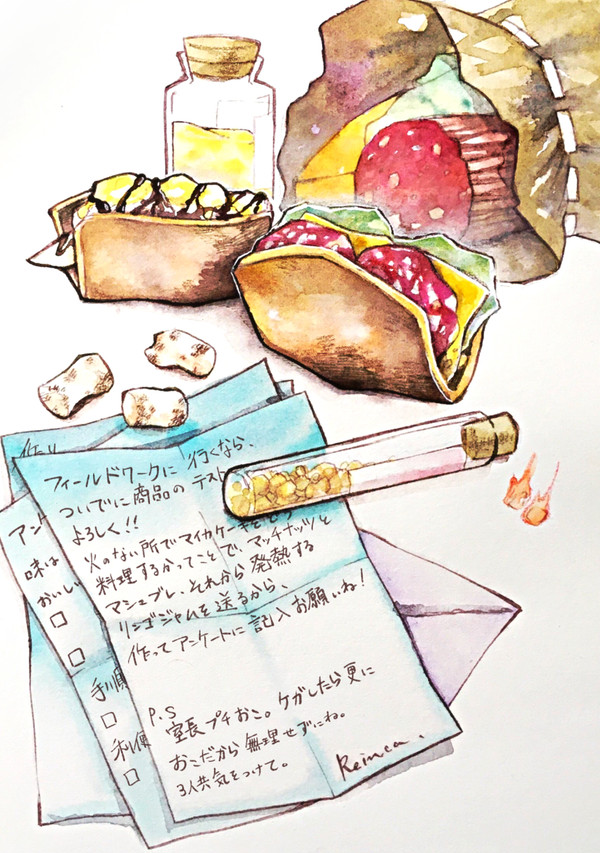 フィールドワークに 行くなら、
ついでに商品の テスト
よろしく!!
火のない所でマイカケーキをどう
料理するかってことで、マッチナッツと
マシュブレ、それから発熱する
リンゴジャムを送るから、
作ってアンケートに記入お願いね!
P.S
室長プチおこ。ケガしたら更に
おこだから無理せずにね。
3人共気をつけて。
Reinca.
アン
味は
おいし
□
□
手順
□
利便
□